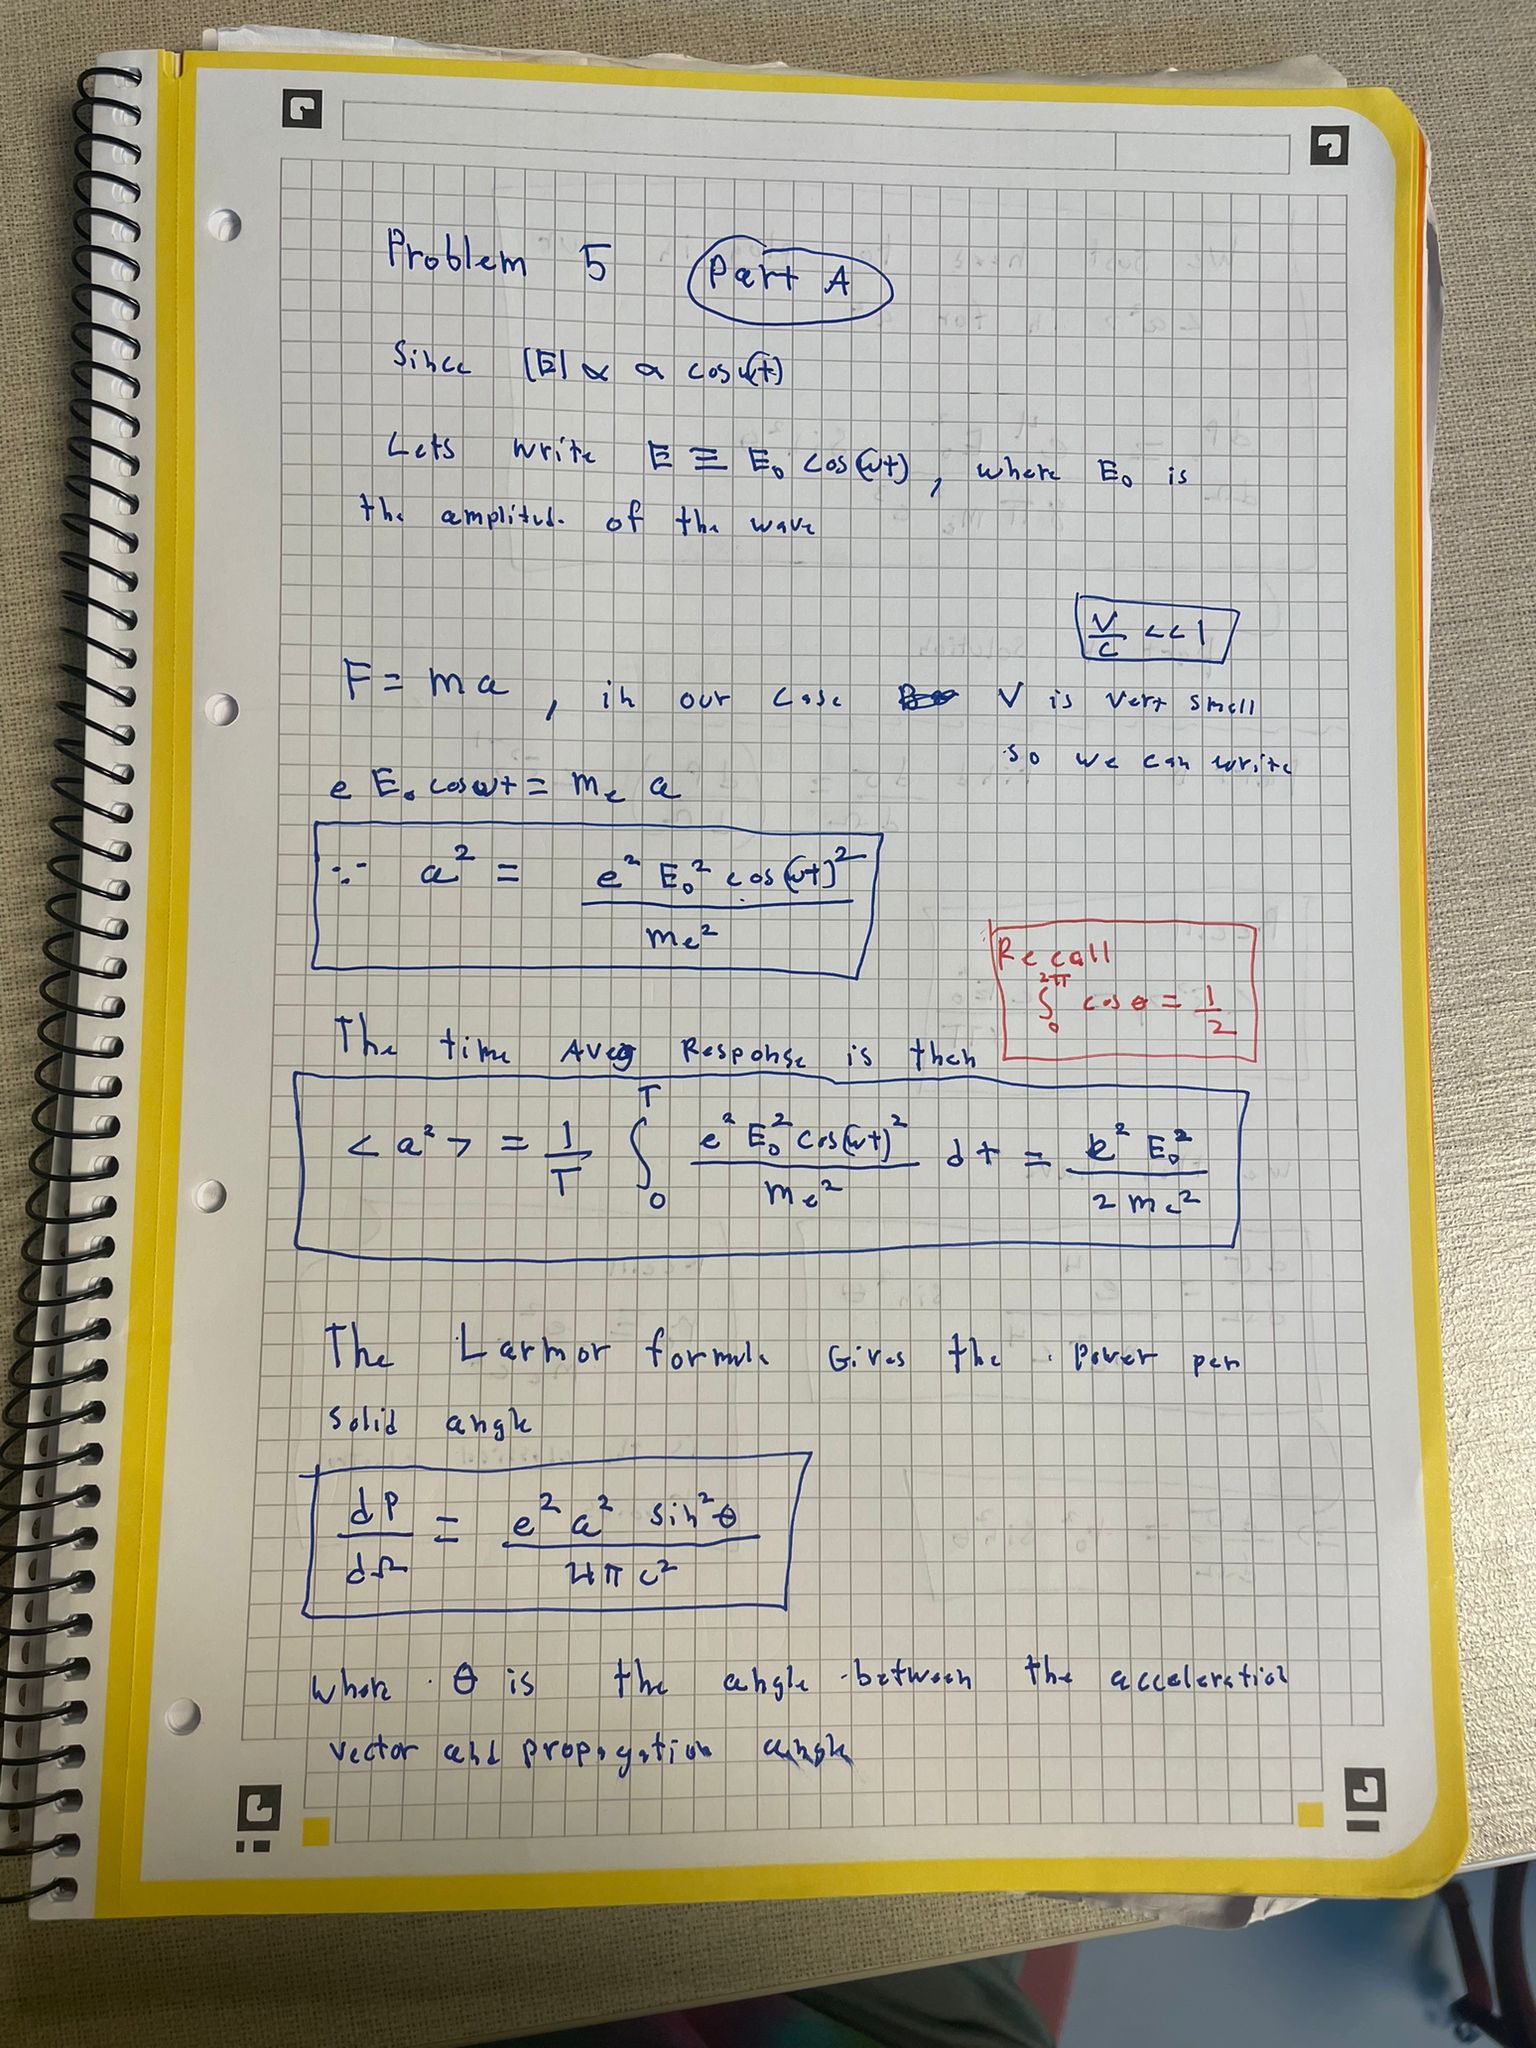 Problem 5 Part A
Since |E| ∝ a cos(ωt)
Lets write E ≡ E₀ cos(ωt), where E₀ is
the amplitud. of the wave
V/c << 1
F = ma, in our case V is very small
so we can write
e E₀ cosωt = mₑ a
∵ a² = e² E₀² cos(ωt)² / mₑ²
Recall
∫₀^2π cos θ = 1/2
The time Aveg Response is then
< a² > = 1/T ∫₀^T e² E₀² cos(ωt)² / mₑ² dt = e² E₀² / 2 mₑ²
The Larmor formula Gives the power per
solid angle
dP/dΩ = e² a² sin²θ / 4π c²
where θ is the angle between the acceleration
vector and propagation angle